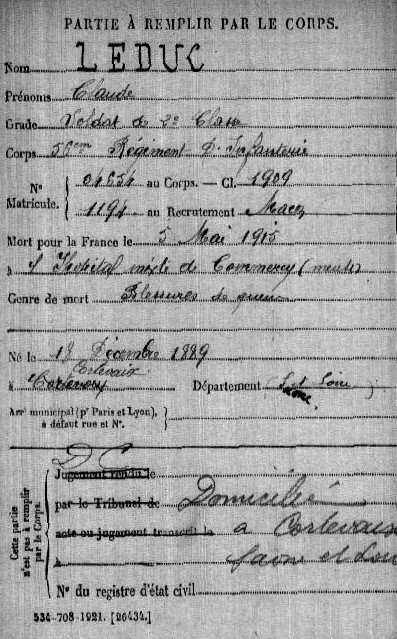 PARTIE À REMPLIR PAR LE CORPS.
Nom LEDUC
Prénoms Claude
Grade Soldat de 2e Classe
Corps 56em Régiment d'Infanterie
N° Matricule. { 04654 au Corps. — Cl. 1909
1194 au Recrutement Macon
Mort pour la France le 5 Mai 1915
à l'Hôpital mixte de Commercy (meuse)
Genre de mort Blessures de guerre
Né le 18 Décembre 1889
Cortevaix
à Département Saône et Loire
Arrt municipal (pr Paris et Lyon), à défaut rue et N°.
DC
Cette partie n'est pas à remplir par le Corps.
Jugement rendu le
par le Tribunal de Domicilié
acte ou jugement transcrit le a Cortevaix
à Saône et Loire
N° du registre d'état civil
534-708-1921. [26434.]